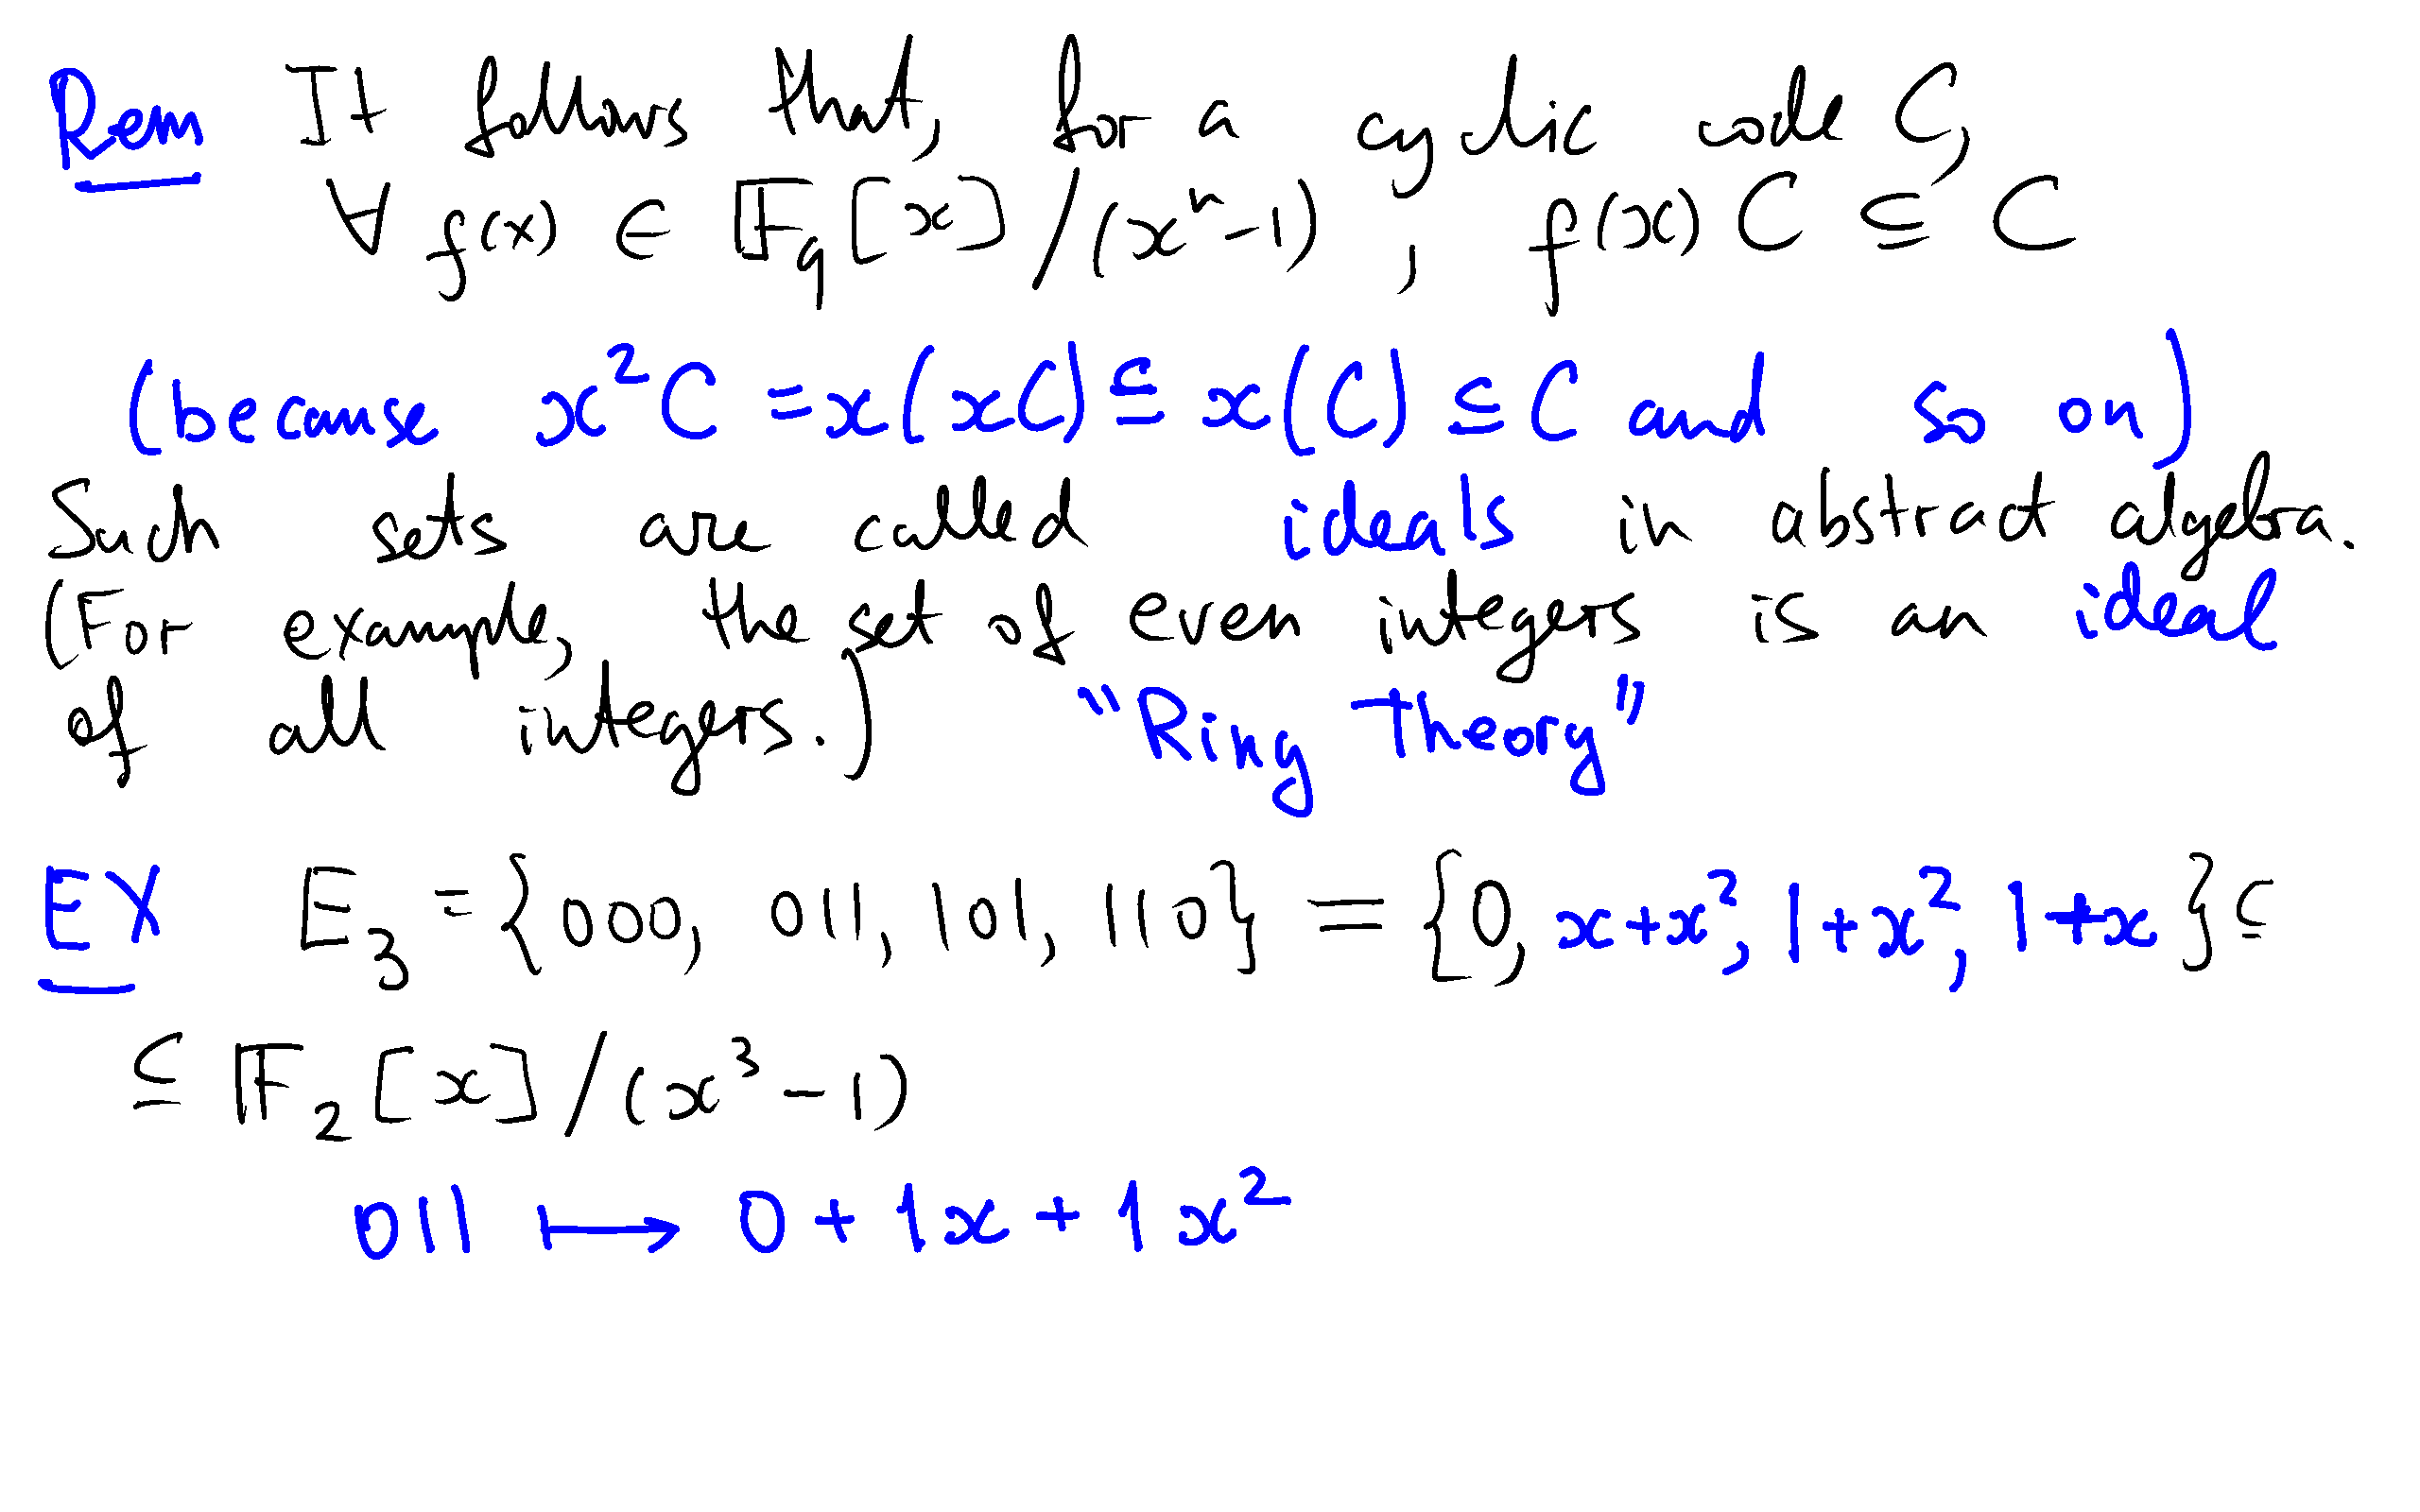 Rem It follows that, for a cyclic code C,
∀ f(x) ∈ 𝔽_q[x]/(xⁿ-1), f(x) C ⊆ C
(because x²C = x(xC) ⊆ x(C) ⊆ C and so on)
Such sets are called ideals in abstract algebra.
(For example, the set of even integers is an ideal
of all integers.) "Ring Theory"
EX E₃ = {000, 011, 101, 110} = {0, x+x², 1+x², 1+x} ⊆
⊆ 𝔽₂[x]/(x³-1)
011 ↦ 0 + 1x + 1x²